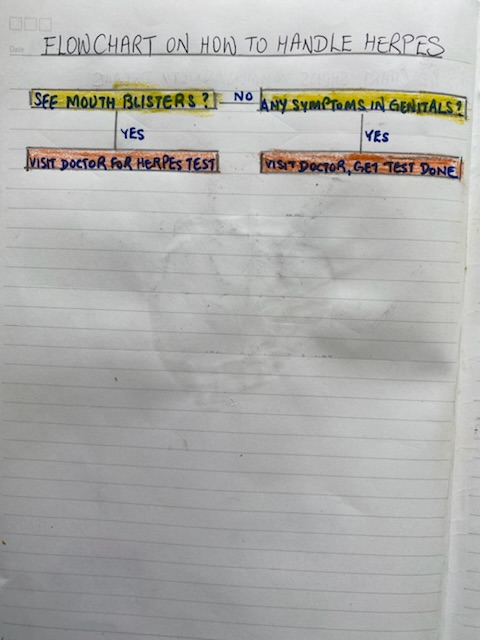 Date
FLOWCHART ON HOW TO HANDLE HERPES
SEE MOUTH BLISTERS?
NO
ANY SYMPTOMS IN GENITALS?
YES
YES
VISIT DOCTOR FOR HERPES TEST
VISIT DOCTOR, GET TEST DONE